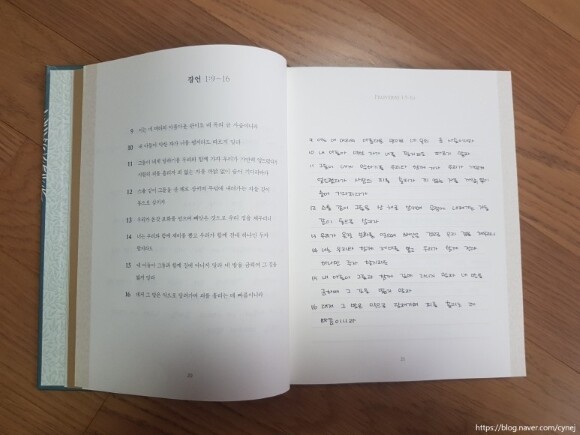 잠언 1:9~16
9 이는 네 머리의 아름다운 관이요 네 목의 금 사슬이니라
10 내 아들아 악한 자가 너를 꾈지라도 따르지 말라
11 그들이 네게 말하기를 우리와 함께 가자 우리가 가만히 엎드렸다가
사람의 피를 흘리자 죄 없는 자를 까닭 없이 숨어 기다리다가
12 스올 같이 그들을 산 채로 삼키며 무덤에 내려가는 자들 같이
통으로 삼키자
13 우리가 온갖 보화를 얻으며 빼앗은 것으로 우리 집을 채우리니
14 너는 우리와 함께 제비를 뽑고 우리가 함께 전대 하나만 두자
할지라도
15 내 아들아 그들과 함께 길에 다니지 말라 네 발을 금하여 그 길을
밟지 말라
16 대저 그 발은 악으로 달려가며 피를 흘리는 데 빠름이니라
9 이는 네 머리의 아름다운 관이요 네 목의 금 사슬이니라
10 내 아들아 악한 자가 너를 꾈지라도 따르지 말라
11 그들이 네게 말하기를 우리와 함께 가자 우리가 가만히
엎드렸다가 사람의 피를 흘리자 죄 없는 자를 까닭 없이
숨어 기다리다가
12 스올 같이 그들을 산 채로 삼키며 무덤에 내려가는 자들
같이 통으로 삼키자
13 우리가 온갖 보화를 얻으며 빼앗은 것으로 우리 집을 채우리니
14 너는 우리와 함께 제비를 뽑고 우리가 함께 전대
하나만 두자 할지라도
15 내 아들아 그들과 함께 길에 다니지 말라 네 발을
금하여 그 길을 밟지 말라
16 대저 그 발은 악으로 달려가며 피를 흘리는 데
빠름이니라
https://blog.naver.com/cynej